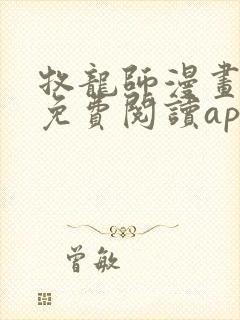 牧龍師漫畫
免費閱讀ap
曾敏